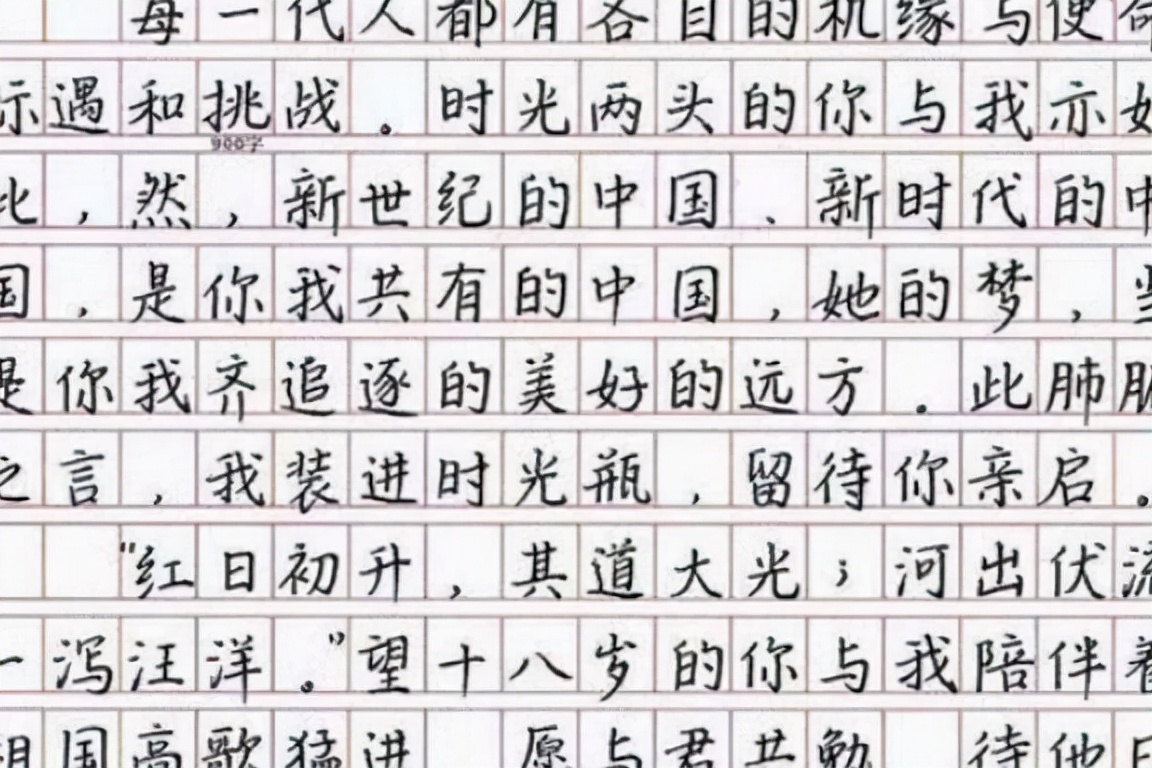 每一代人都有各自的机缘与使命
际遇和挑战。时光两头的你与我亦如
900字
此，然，新世纪的中国、新时代的中
国，是你我共有的中国，她的梦，当
是你我齐追逐的美好的远方。此肺腑
之言，我装进时光瓶，留待你亲启。
“红日初升，其道大光；河出伏流
一泻汪洋。”望十八岁的你与我陪伴着
祖国高歌猛进 愿与君共勉 待他日